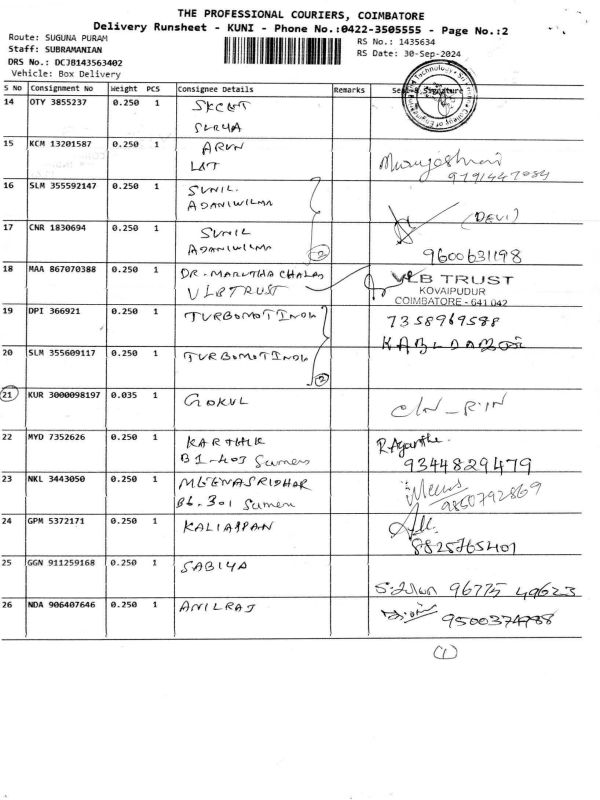 THE PROFESSIONAL COURIERS, COIMBATORE
Delivery Runsheet - KUNI - Phone No.:0422-3505555 - Page No.:2
Route: SUGUNA PURAM
RS No.: 1435634
Staff: SUBRAMANIAN
RS Date: 30-Sep-2024
DRS No.: DCJB143563402
Vehicle: Box Delivery
S No Consignment No Weight PCS Consignee Details Remarks Seal & Signature
14 OTY 3855237 0.250 1 SKCET
SURYA
15 KCM 13201587 0.250 1 ARUN
LAT
9791447084
16 SLM 355592147 0.250 1 SUNIL
ADANIWILMA
(DEVI)
17 CNR 1830694 0.250 1 SUNIL
ADANIWILMA
2
9600631198
18 MAA 867070388 0.250 1 DR. MARUTHACHALAS
VLB TRUST
VLB TRUST
KOVAIPUDUR
COIMBATORE - 641 042
19 DPI 366921 0.250 1 TURBOMOT INDIA
7358969588
20 SLM 355609117 0.250 1 TURBOMOT INDIA
2
21 KUR 3000098197 0.035 1 GOKUL
C/N
22 MYD 7352626 0.250 1 KARTHIK
B1-403 Sumeru
9344829479
23 NKL 3443050 0.250 1 MEENASRIDHAR
B6.301 Sumeru
9860792869
24 GPM 5372171 0.250 1 KALIAPPAN
8825765401
25 GGN 911259168 0.250 1 SABIYA
96775 49623
26 NDA 906407646 0.250 1 ANILRAJ
9500374988
1